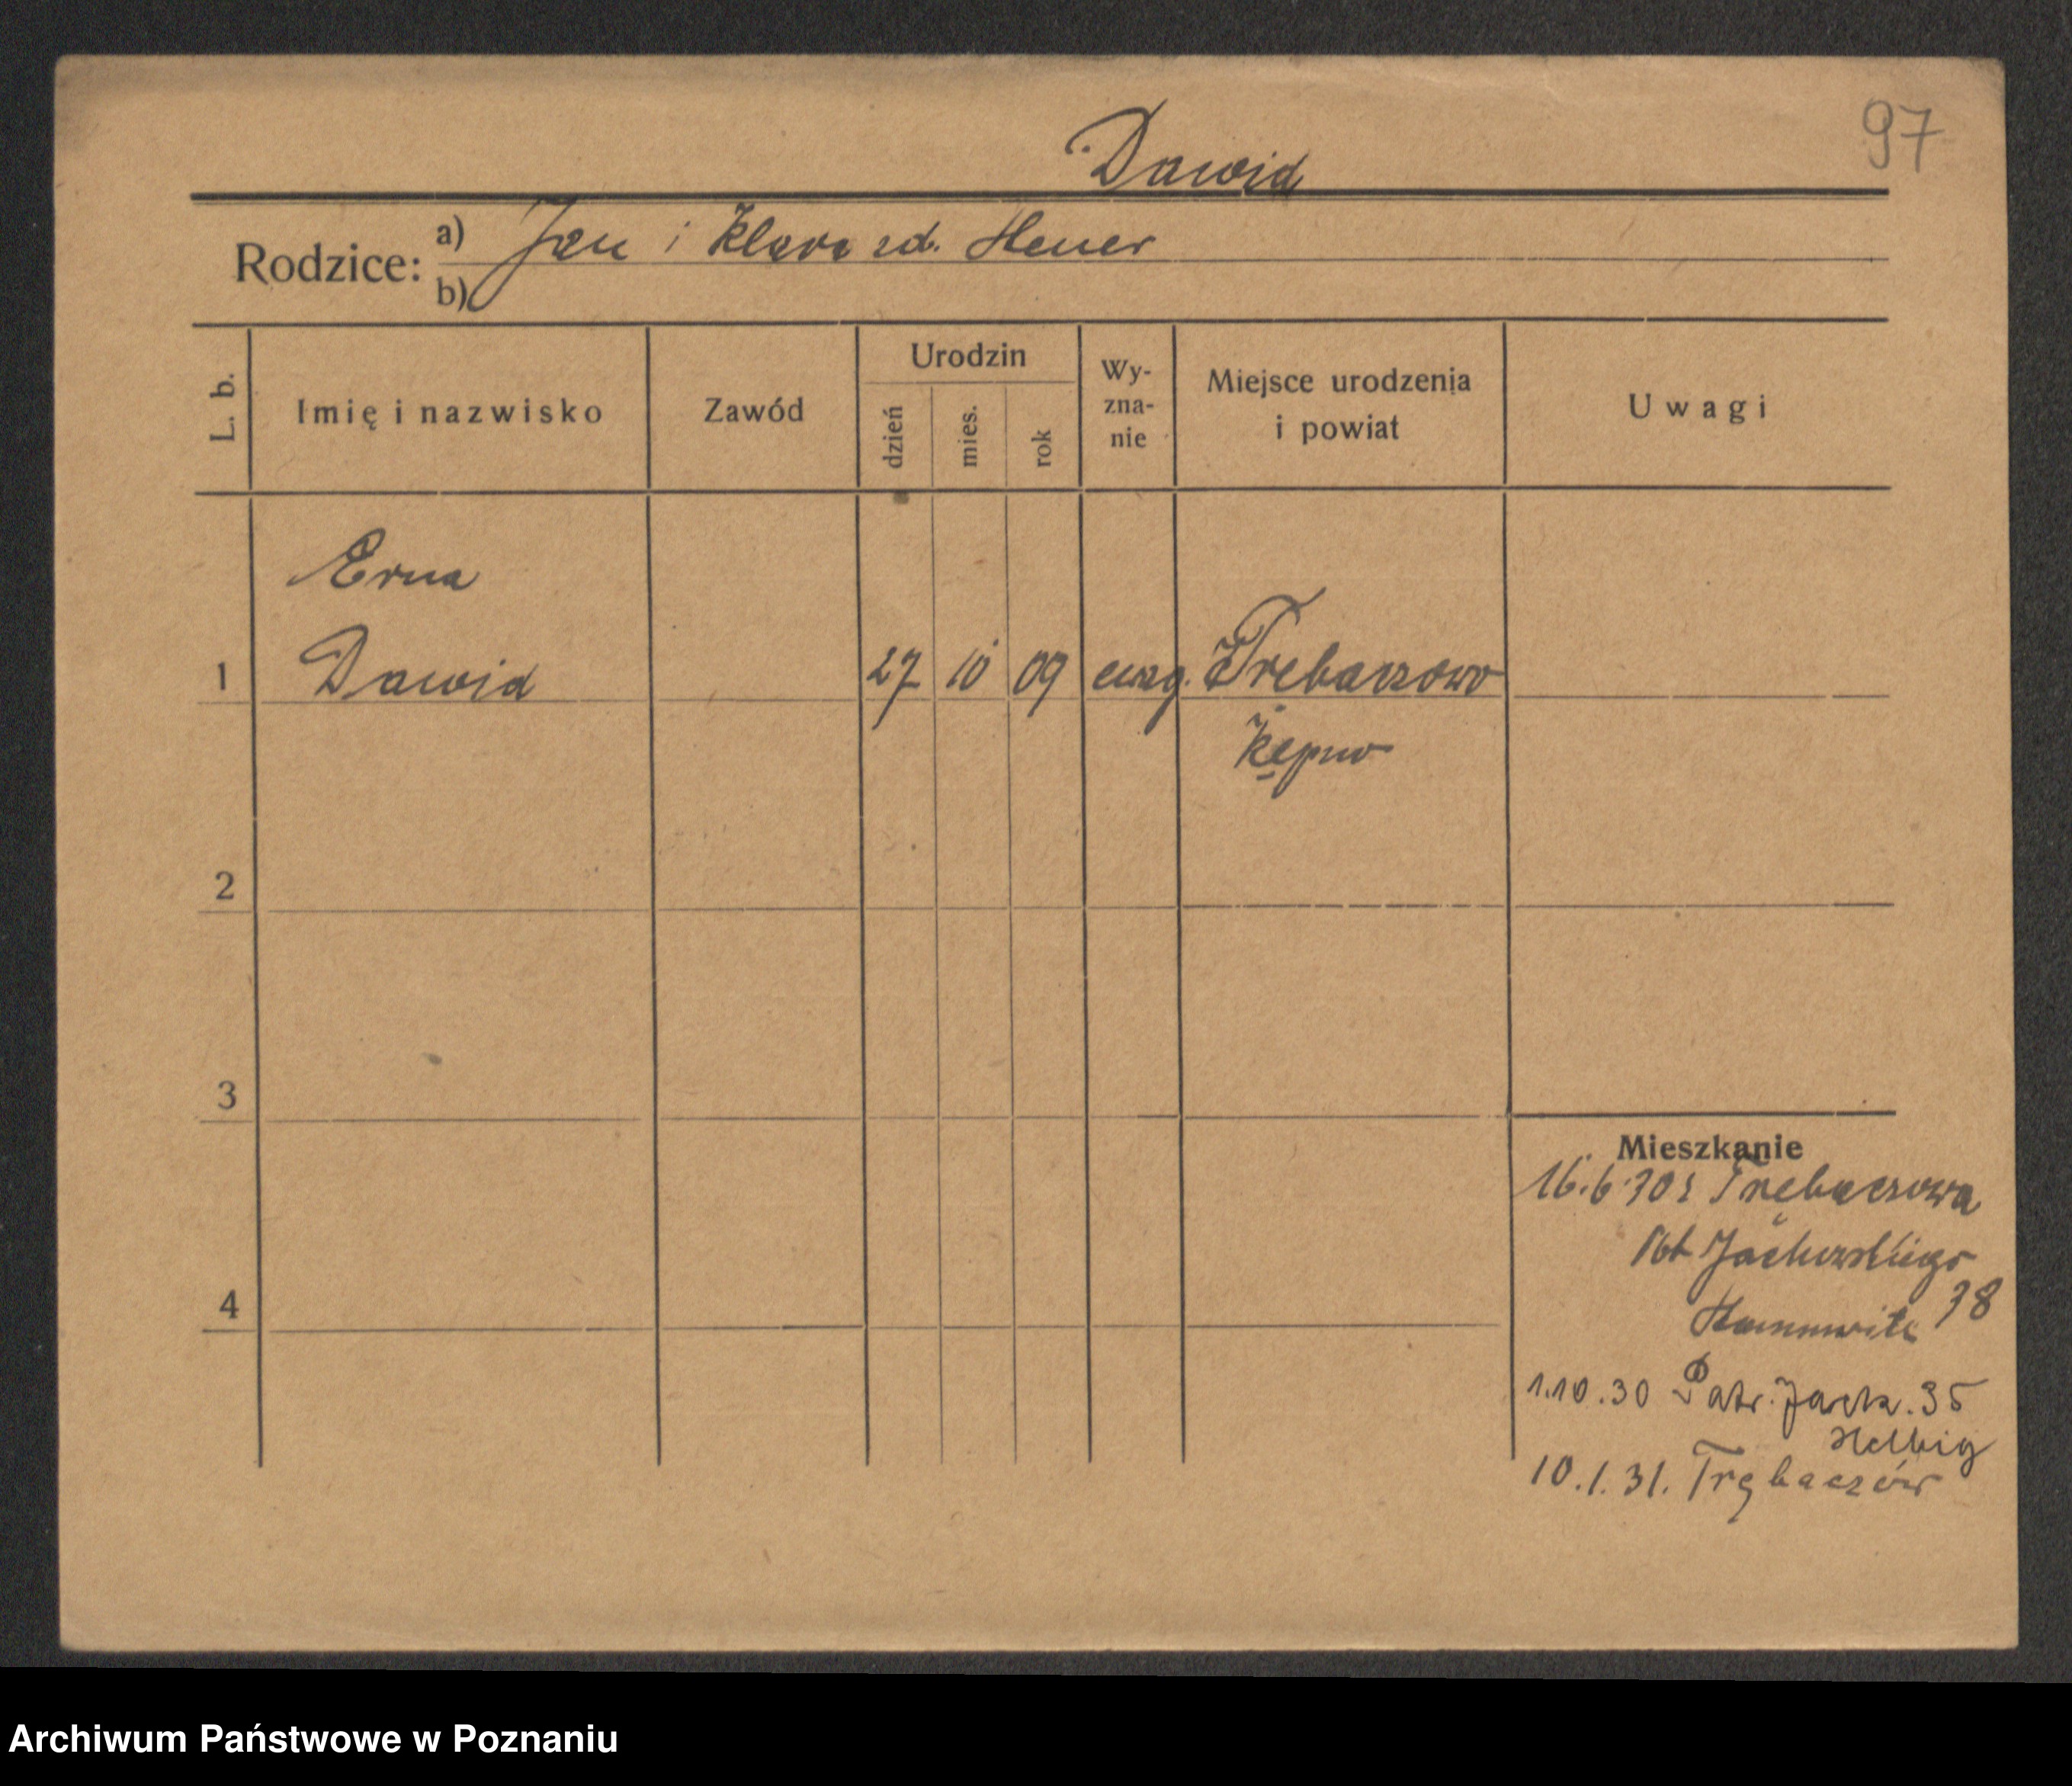 97
Dawid
Rodzice: a) Jan i Klara zd. Heuer
b)
L. b.
Imię i nazwisko
Zawód
Urodzin
dzień
mies.
rok
Wy-
zna-
nie
Miejsce urodzenia
i powiat
Uwagi
Erna
1 Dawid 27 10 09 ewag. Trebaczowo
Kępno
2
3
4
Mieszkanie
16.6 30 z Trębaczowa
38
1.10.30 Patr. Jack. 35
Helbig
10.1.31. Trębaczów
Archiwum Państwowe w Poznaniu